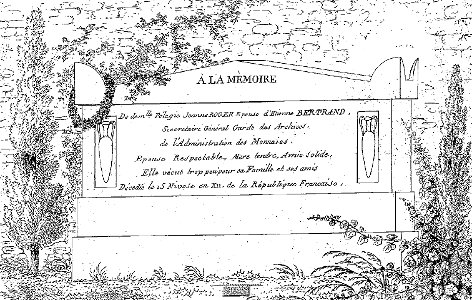 À LA MÉMOIRE
De dem.lle Pélagie Jeanne ROGER Epouse d'Etienne BERTRAND,
Secrétaire Général Garde des Archives,
de l'Administration des Monnaies.
Epouse Respectable, Mere tendre, Amie solide,
Elle vécut trop peu pour sa Famille et ses amis
Décédée le 15 Nivose en XII. de la République Française.